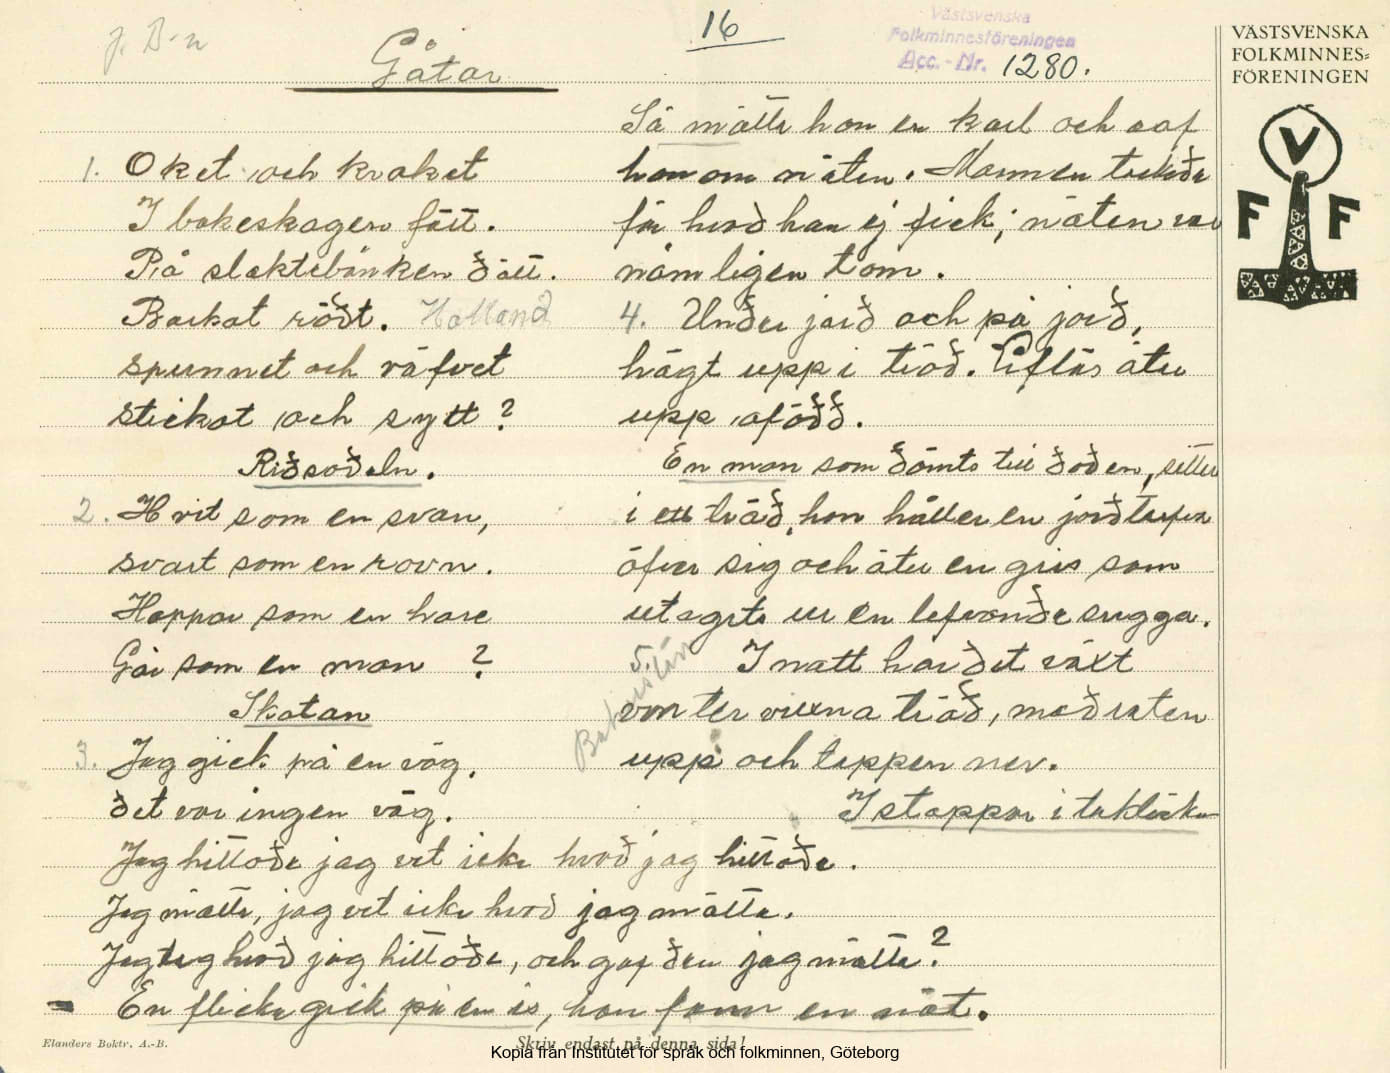 J. B-n
16
Västsvenska
Folkminnesföreningen
Acc.-Nr. 1280.
VÄSTSVENSKA
FOLKMINNES=
FÖRENINGEN
V
F F
Gåtar
1. Oket och kraket
I bokeskagen fått.
På slaktebänken dött.
Barkat rödt. Halland
spunnet och väfvet
stickat och sytt?
Ridsadeln.
2. Hvit som en svan,
svart som en ravn.
Hoppar som en hare
Går som en man?
Skatan
3. Jag gick på en väg,
det var ingen väg.
Jag hittade jag vet icke hvad jag hittade.
Jag mätte, jag vet icke hvad jag mätte.
Jag tog hvad jag hittade, och gaf den jag mätte?
En flicka gick på en is, hon fann en nöt.
Så mötte hon en karl och gaf
honom nöten. Mannen tackade
för hvad han ej fick; nöten var
nämligen tom.
4. Under jord och på jord,
högt upp i träd. äter
upp ofödd.
En man som dömts till döden, sitter
i ett träd, han håller en jordtorfva
öfver sig och äter en gris som
utagits ur en lefvande sugga.
5. I natt har det växt
Bohuslän
vuxna träd, med roten
upp och toppen ner.
Istappar i
Elanders Boktr. A.-B.
Skriv endast på denna sida!
Kopia från Institutet för språk och folkminnen, Göteborg